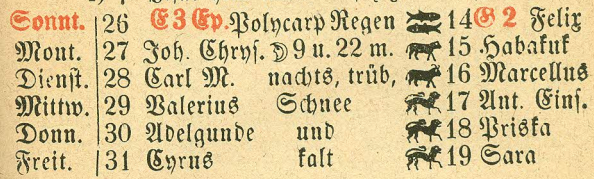 Sonnt. 26 E 3 Ep. Polycarp Regen 14 G 2 Felix
Mont. 27 Joh. Chrys. ☽ 9 u. 22 m. 15 Habakuk
Dienst. 28 Carl M. nachts, trüb, 16 Marcellus
Mittw. 29 Valerius Schnee 17 Ant. Eins.
Donn. 30 Adelgunde und 18 Priska
Freit. 31 Cyrus kalt 19 Sara